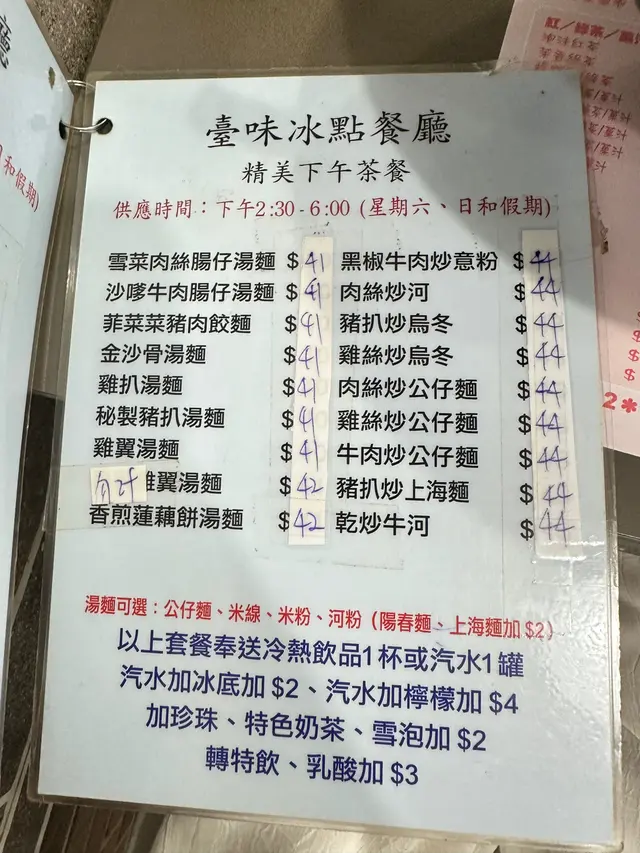 臺味冰點餐廳
精美下午茶餐
供應時間：下午2:30-6:00 (星期六、日和假期)
雪菜肉絲腸仔湯麵 $41
沙嗲牛肉腸仔湯麵 $41
菲菜菜豬肉餃麵 $41
金沙骨湯麵 $41
雞扒湯麵 $41
秘製豬扒湯麵 $41
雞翼湯麵 $41
雞翼湯麵 $42
香煎蓮藕餅湯麵 $42
黑椒牛肉炒意粉 $44
肉絲炒河 $44
豬扒炒烏冬 $44
雞絲炒烏冬 $44
肉絲炒公仔麵 $44
雞絲炒公仔麵 $44
牛肉炒公仔麵 $44
豬扒炒上海麵 $44
乾炒牛河 $44
湯麵可選：公仔麵、米線、米粉、河粉（陽春麵、上海麵加 $2）
以上套餐奉送冷熱飲品1杯或汽水1罐
汽水加冰底加 $2、汽水加檸檬加 $4
加珍珠、特色奶茶、雪泡加 $2
轉特飲、乳酸加 $3
廳
和假期)
紅/綠茶/
$
$
$
2*